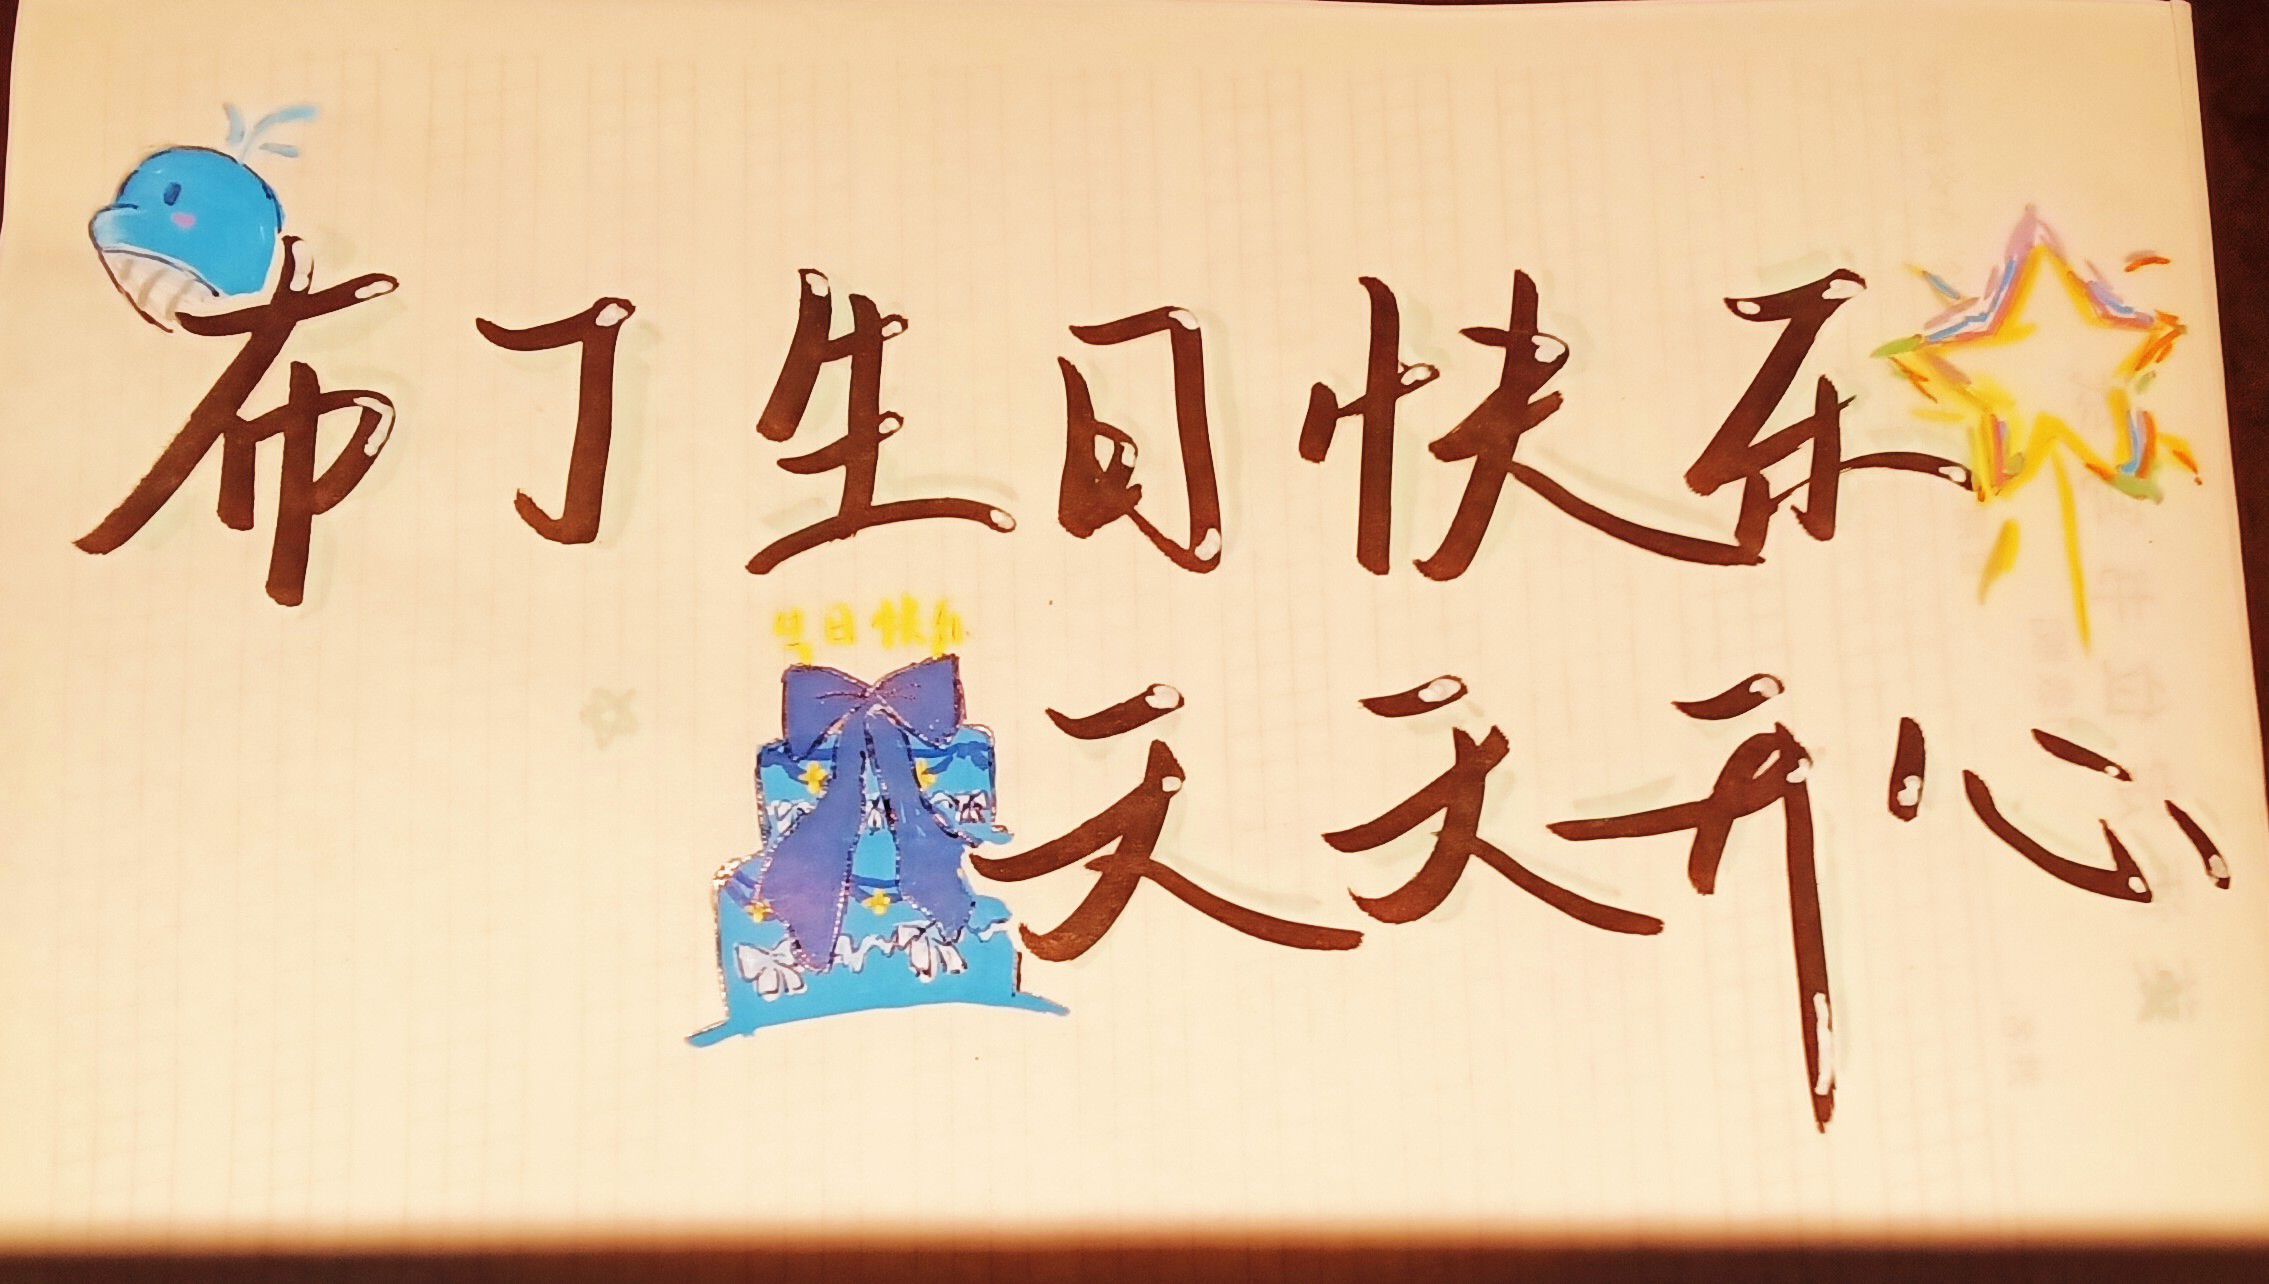 布丁生日快乐
生日快乐
天天开心